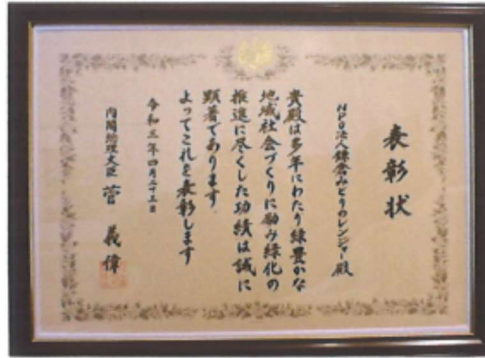 表彰状
NPO法人鎌倉みどりのレンジャー殿
貴殿は多年にわたり緑豊かな
地域社会づくりに励み緑化の
推進に尽くした功績は誠に
顕著であります
よってこれを表彰します
令和三年四月二十三日
内閣総理大臣 菅 義偉